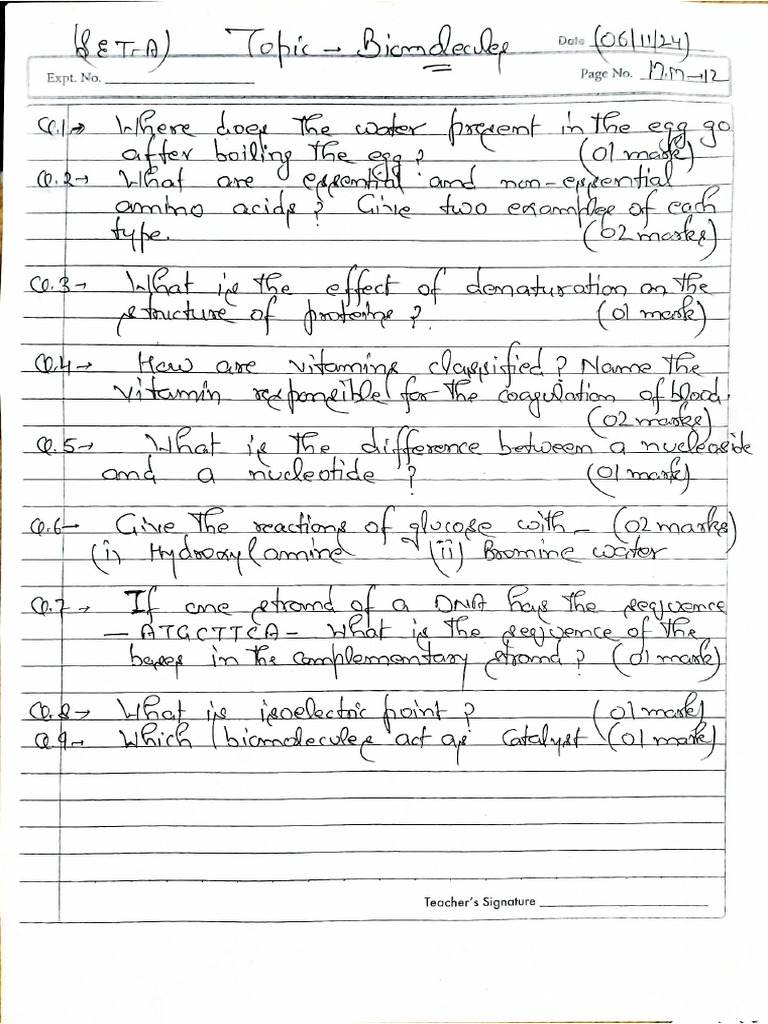 (SET-A) Topic - Biomolecules Date (06/11/24)
Expt. No. Page No. M.M-12
Q.1→ Where does the water present in the egg go
after boiling the egg? (01 mark)
Q.2→ What are essential and non-essential
amino acids? Give two examples of each
type. (02 marks)
Q.3→ What is the effect of denaturation on the
structure of proteins? (01 mark)
Q.4→ How are vitamins classified? Name the
vitamin responsible for the coagulation of blood.
(02 marks)
Q.5→ What is the difference between a nucleoside
and a nucleotide? (01 mark)
Q.6→ Give the reactions of glucose with- (02 marks)
(i) Hydroxylamine (ii) Bromine water
Q.7→ If one strand of a DNA has the sequence
- ATGCTTCA - What is the sequence of the
bases in the complementary strand? (01 mark)
Q.8→ What is isoelectric point? (01 mark)
Q.9→ Which biomolecules act as catalyst (01 mark)
Teacher's Signature